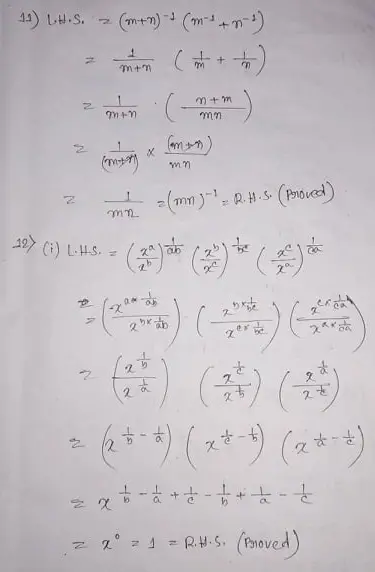 11) L.H.S. = (m+n)⁻¹ (m⁻¹ + n⁻¹)
= 1/(m+n) (1/m + 1/n)
= 1/(m+n) · ((n+m)/(mn))
= 1/(m+n) × (m+n)/(mn)
= 1/(mn) = (mn)⁻¹ = R.H.S. (Proved)
12) (i) L.H.S. = (x^a/x^b)^(1/ab) (x^b/x^c)^(1/bc) (x^c/x^a)^(1/ca)
= (x^(a×1/ab)/x^(b×1/ab)) · (x^(b×1/bc)/x^(c×1/bc)) (x^(c×1/ca)/x^(a×1/ca))
= (x^(1/b)/x^(1/a)) (x^(1/c)/x^(1/b)) (x^(1/a)/x^(1/c))
= (x^(1/b - 1/a)) · (x^(1/c - 1/b)) (x^(1/a - 1/c))
= x^(1/b - 1/a + 1/c - 1/b + 1/a - 1/c)
= x⁰ = 1 = R.H.S. (Proved)